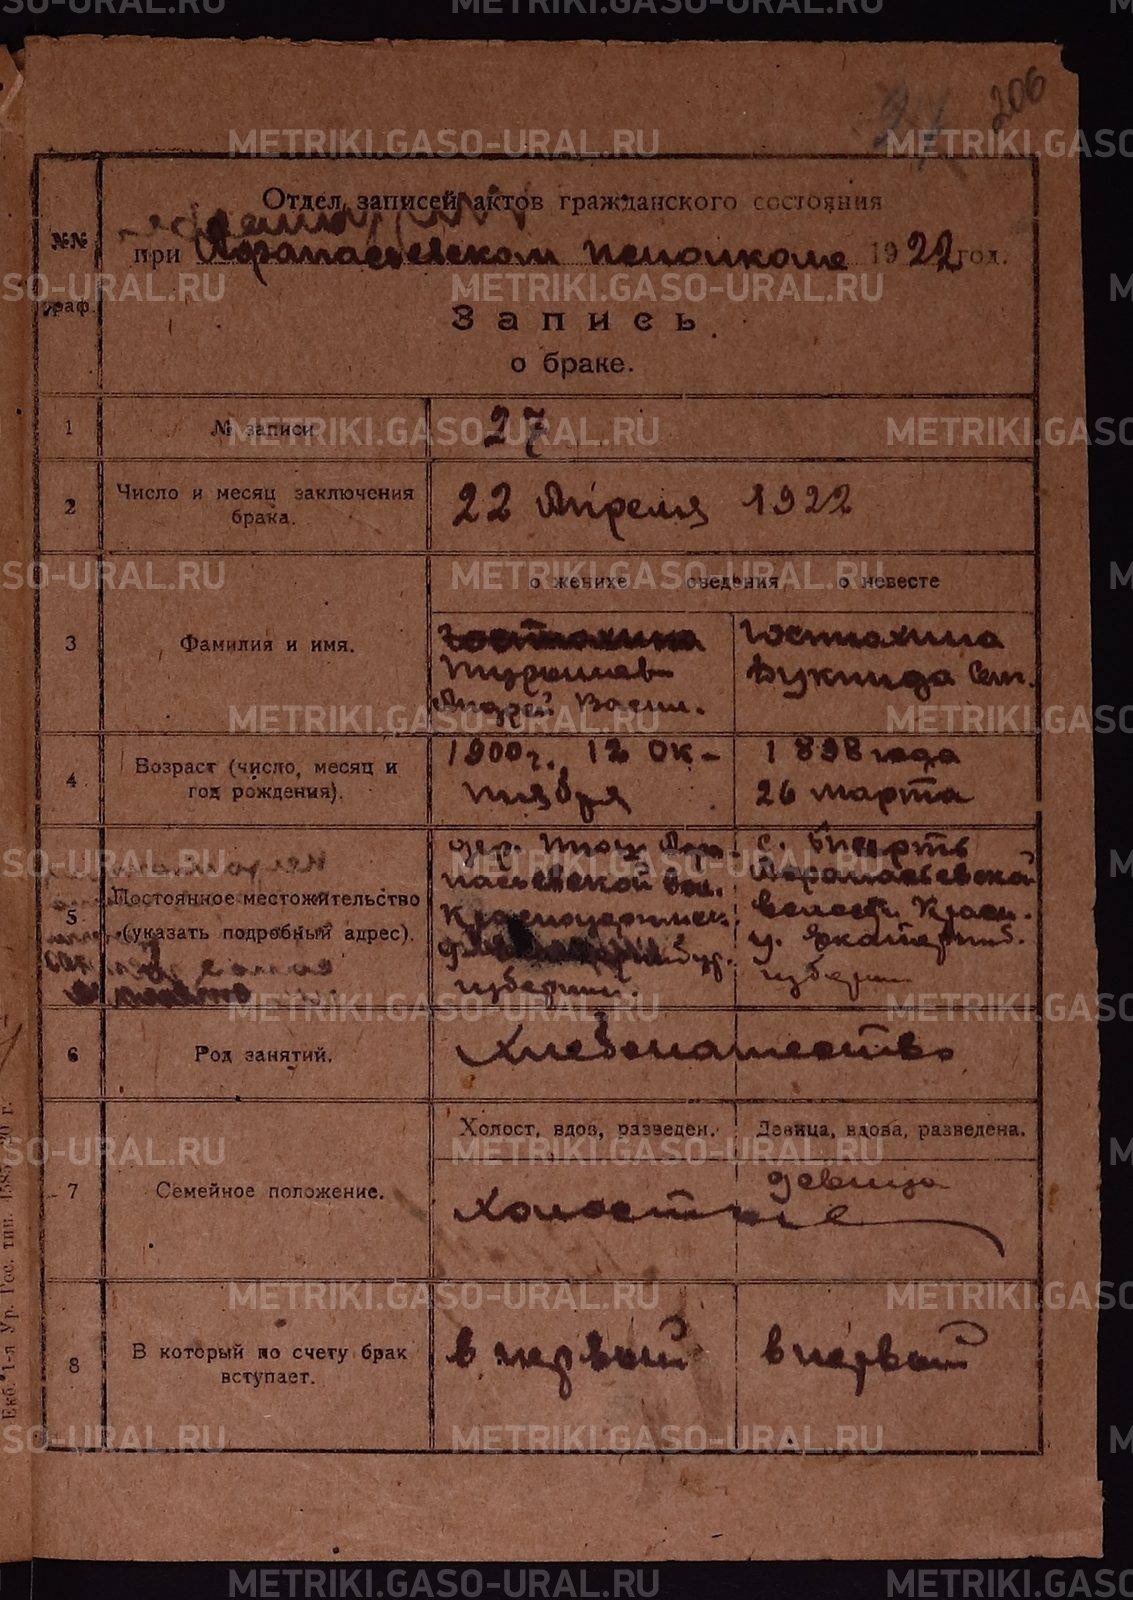 206
Отдел записей актов гражданского состояния
при Афанасьевском исполкоме 1922 год.
№№ граф.
Запись
о браке.
1 № записи 27
2 Число и месяц заключения брака. 22 Апреля 1922
о женихе сведения о невесте
3 Фамилия и имя.
Турышев
Андрей Васил.
Гостюхина
4 Возраст (число, месяц и год рождения).
1900 г. 12 Ок-
тября
1898 года
26 марта
5 Постоянное местожительство (указать подробный адрес).
дер. Афа-
насьевской вол.
Красноуфимск.
губернии.
с. Бисерть
Афанасьевской
волости Красн.
у. Екатеринб.
губерни
6 Род занятий. Хлебопашество
Холост, вдов, разведен. Девица, вдова, разведена.
7 Семейное положение. холостые девица
8 В который по счету брак вступает. в первый в первый
Екб. 1-я Ур. Гос. тип.
METRIKI.GASO-URAL.RU